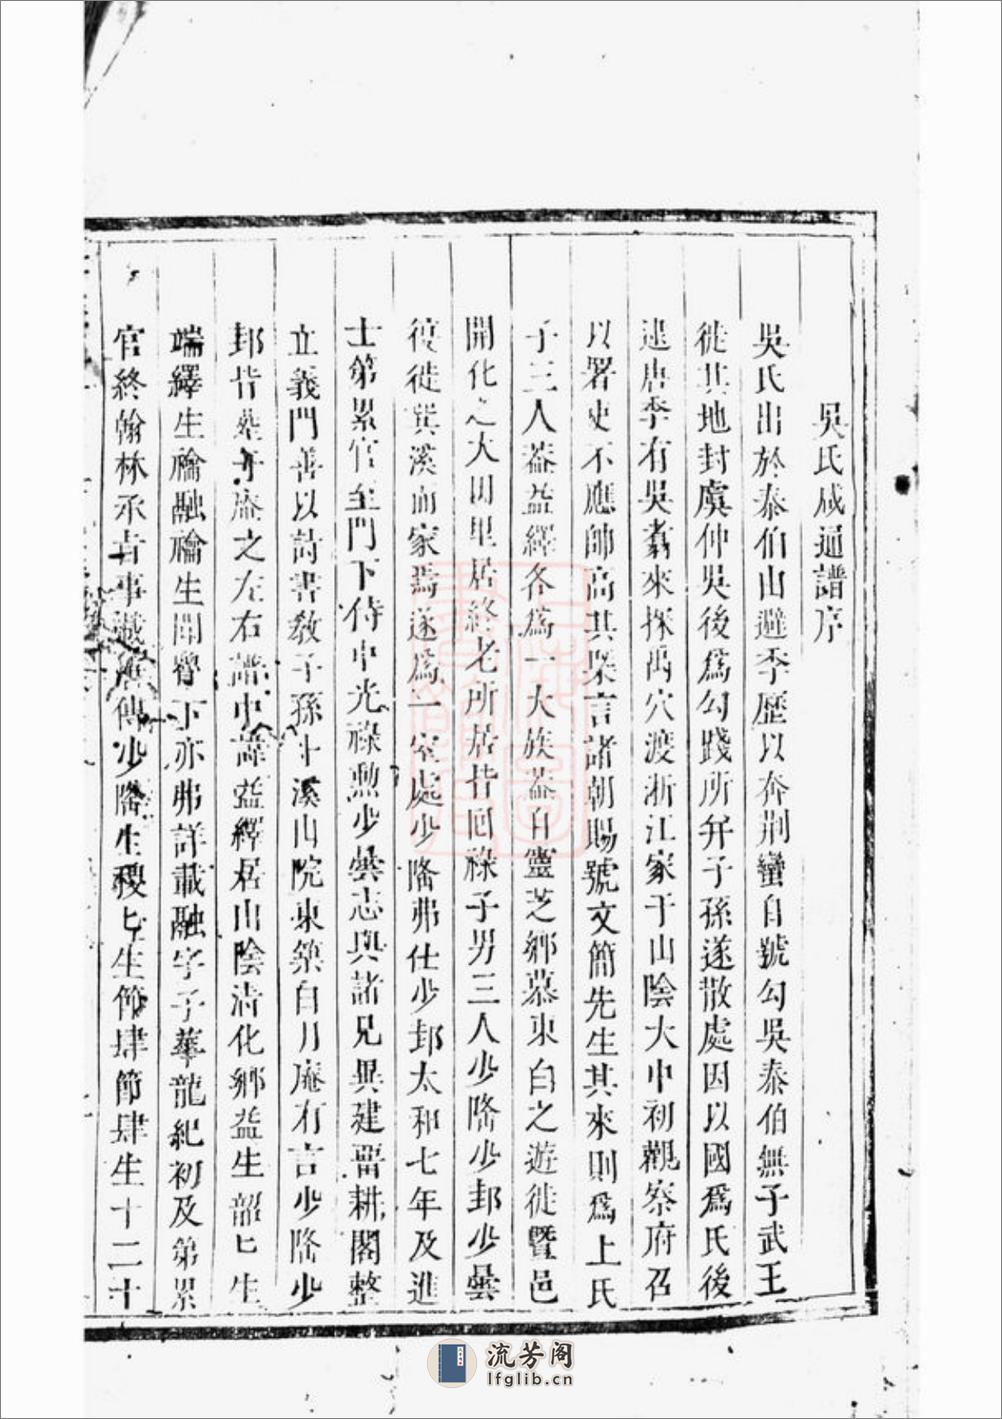 吳氏咸通譜序
吳氏出於泰伯山避季歷以奔荆蠻自號勾吳泰伯無子武王
徙其地封虞仲吳後爲勾踐所弁子孫遂散處因以國爲氏後
逮唐季有吳翥來探禹穴渡浙江家于山陰大中初觀察府召
以署吏不應帥高其槩言諸朝賜號文簡先生其來則爲上氏
子三人葢益繹各爲一大族葢自靈芝鄉慕東白之遊徙暨邑
開化之大田里居終老所居昔回祿子男三人少隆少邽少曇
復徙巽溪而家焉遂爲一室處少隆弗仕少邽太和七年及進
士第累官至門下侍中光祿勲少曇志與諸兄異建畱耕閣整
立義門善以詩書敎子孫于溪山院東築白月庵有言少隆少
邽昔葬于庵之左右譜中諱益繹居山陰淸化鄉益生韶韶生
端繹生禴融禴生聞詧下亦弗詳載融字子華龍紀初及第累
官終翰林承旨事載唐傳少隆生稷稷生節肆節肆生十二十
流芳阁
lfglib.cn